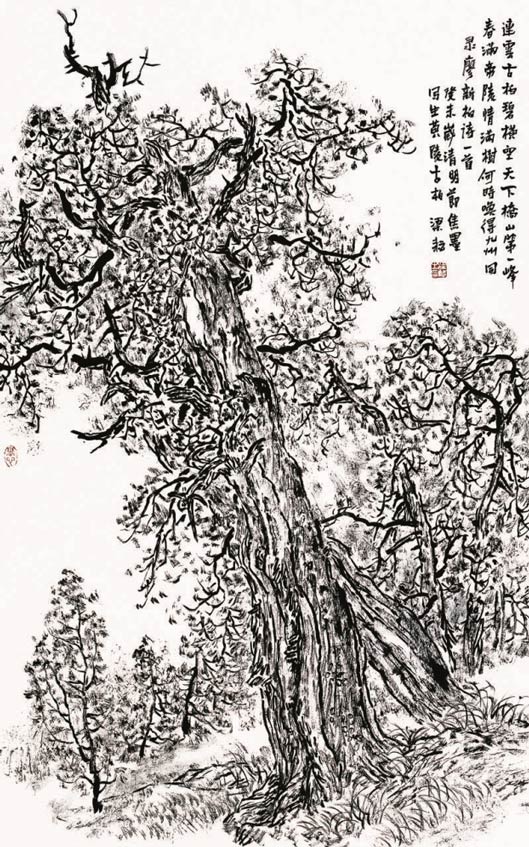 連雲古柏碧橫空天下橋山第一峰
春滿帝陵情滿樹何時喚得九州同
录廖柏詩一首
癸未歲清明節焦墨
寫生黃陵古柏 梁耘